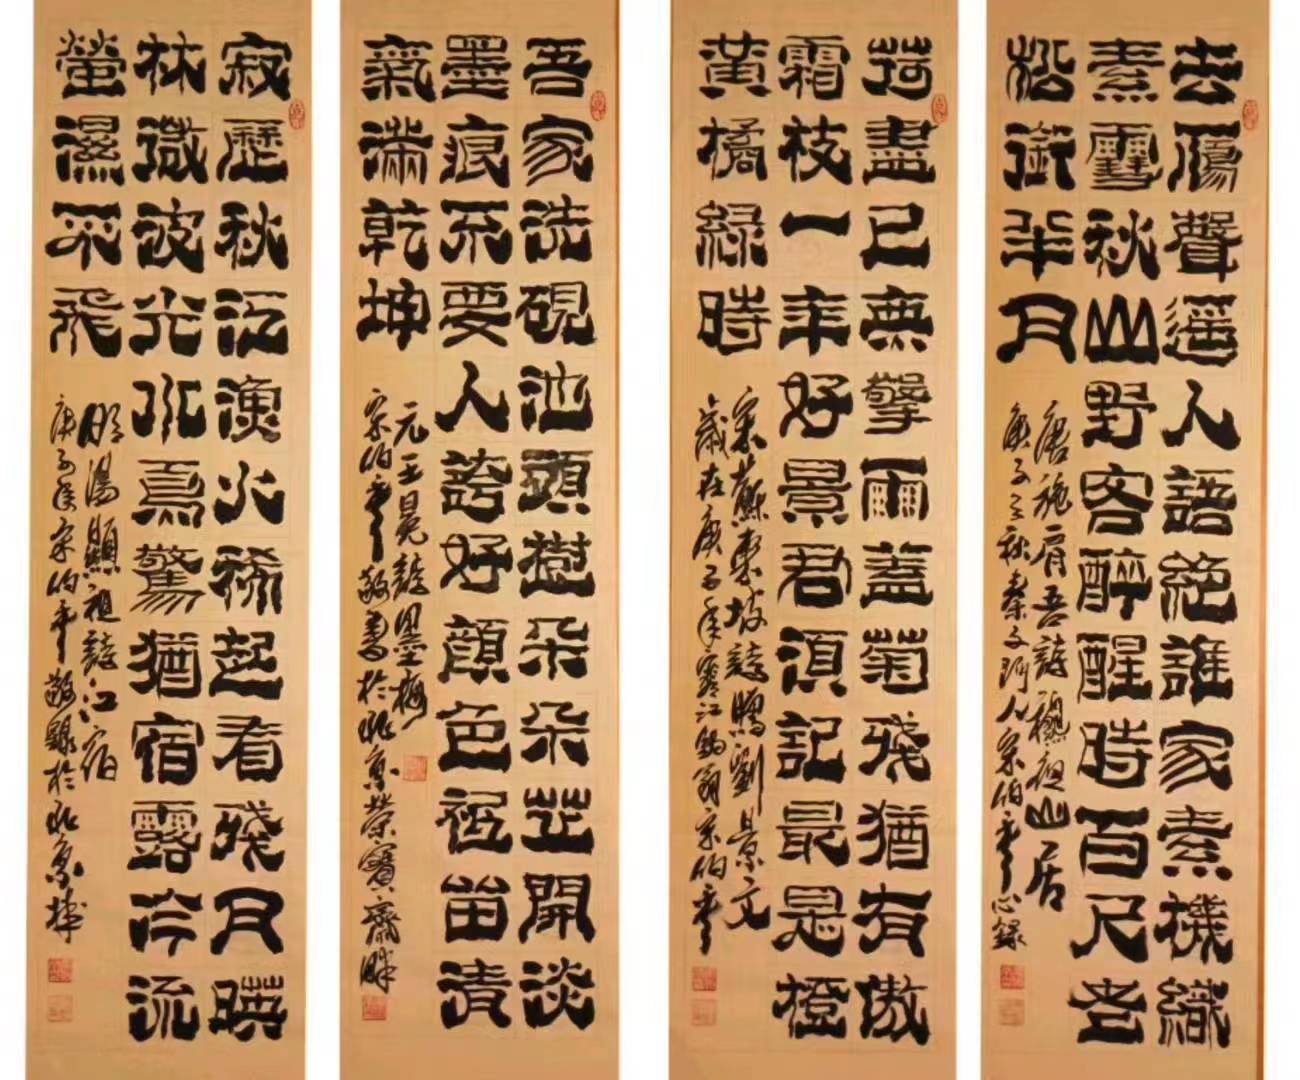 去雁聲遥人語絶誰家素機織
素雪秋山野客醉醒時百尺老
松銜半月
唐施肩吾詩秋夜山居
庚子之秋門人宗伯年心錄
荷盡已無擎雨蓋菊殘猶有傲
霜枝一年好景君須記最是橙
黃橘緑時
宋蘇東坡詩贈劉景文
歲在庚子年寒江釣翁宗伯年
吾家洗硯池頭樹朵朵花開淡
墨痕不要人誇好顔色祗留清
氣滿乾坤
元王冕詩墨梅
宗伯年敬書於北京榮寶齋畔
寂歷秋江漁火稀起看殘月映
林微波光水鳥驚猶宿露冷流
螢濕不飛
明湯顯祖詩江宿
庚子年宗伯年敬錄於北京